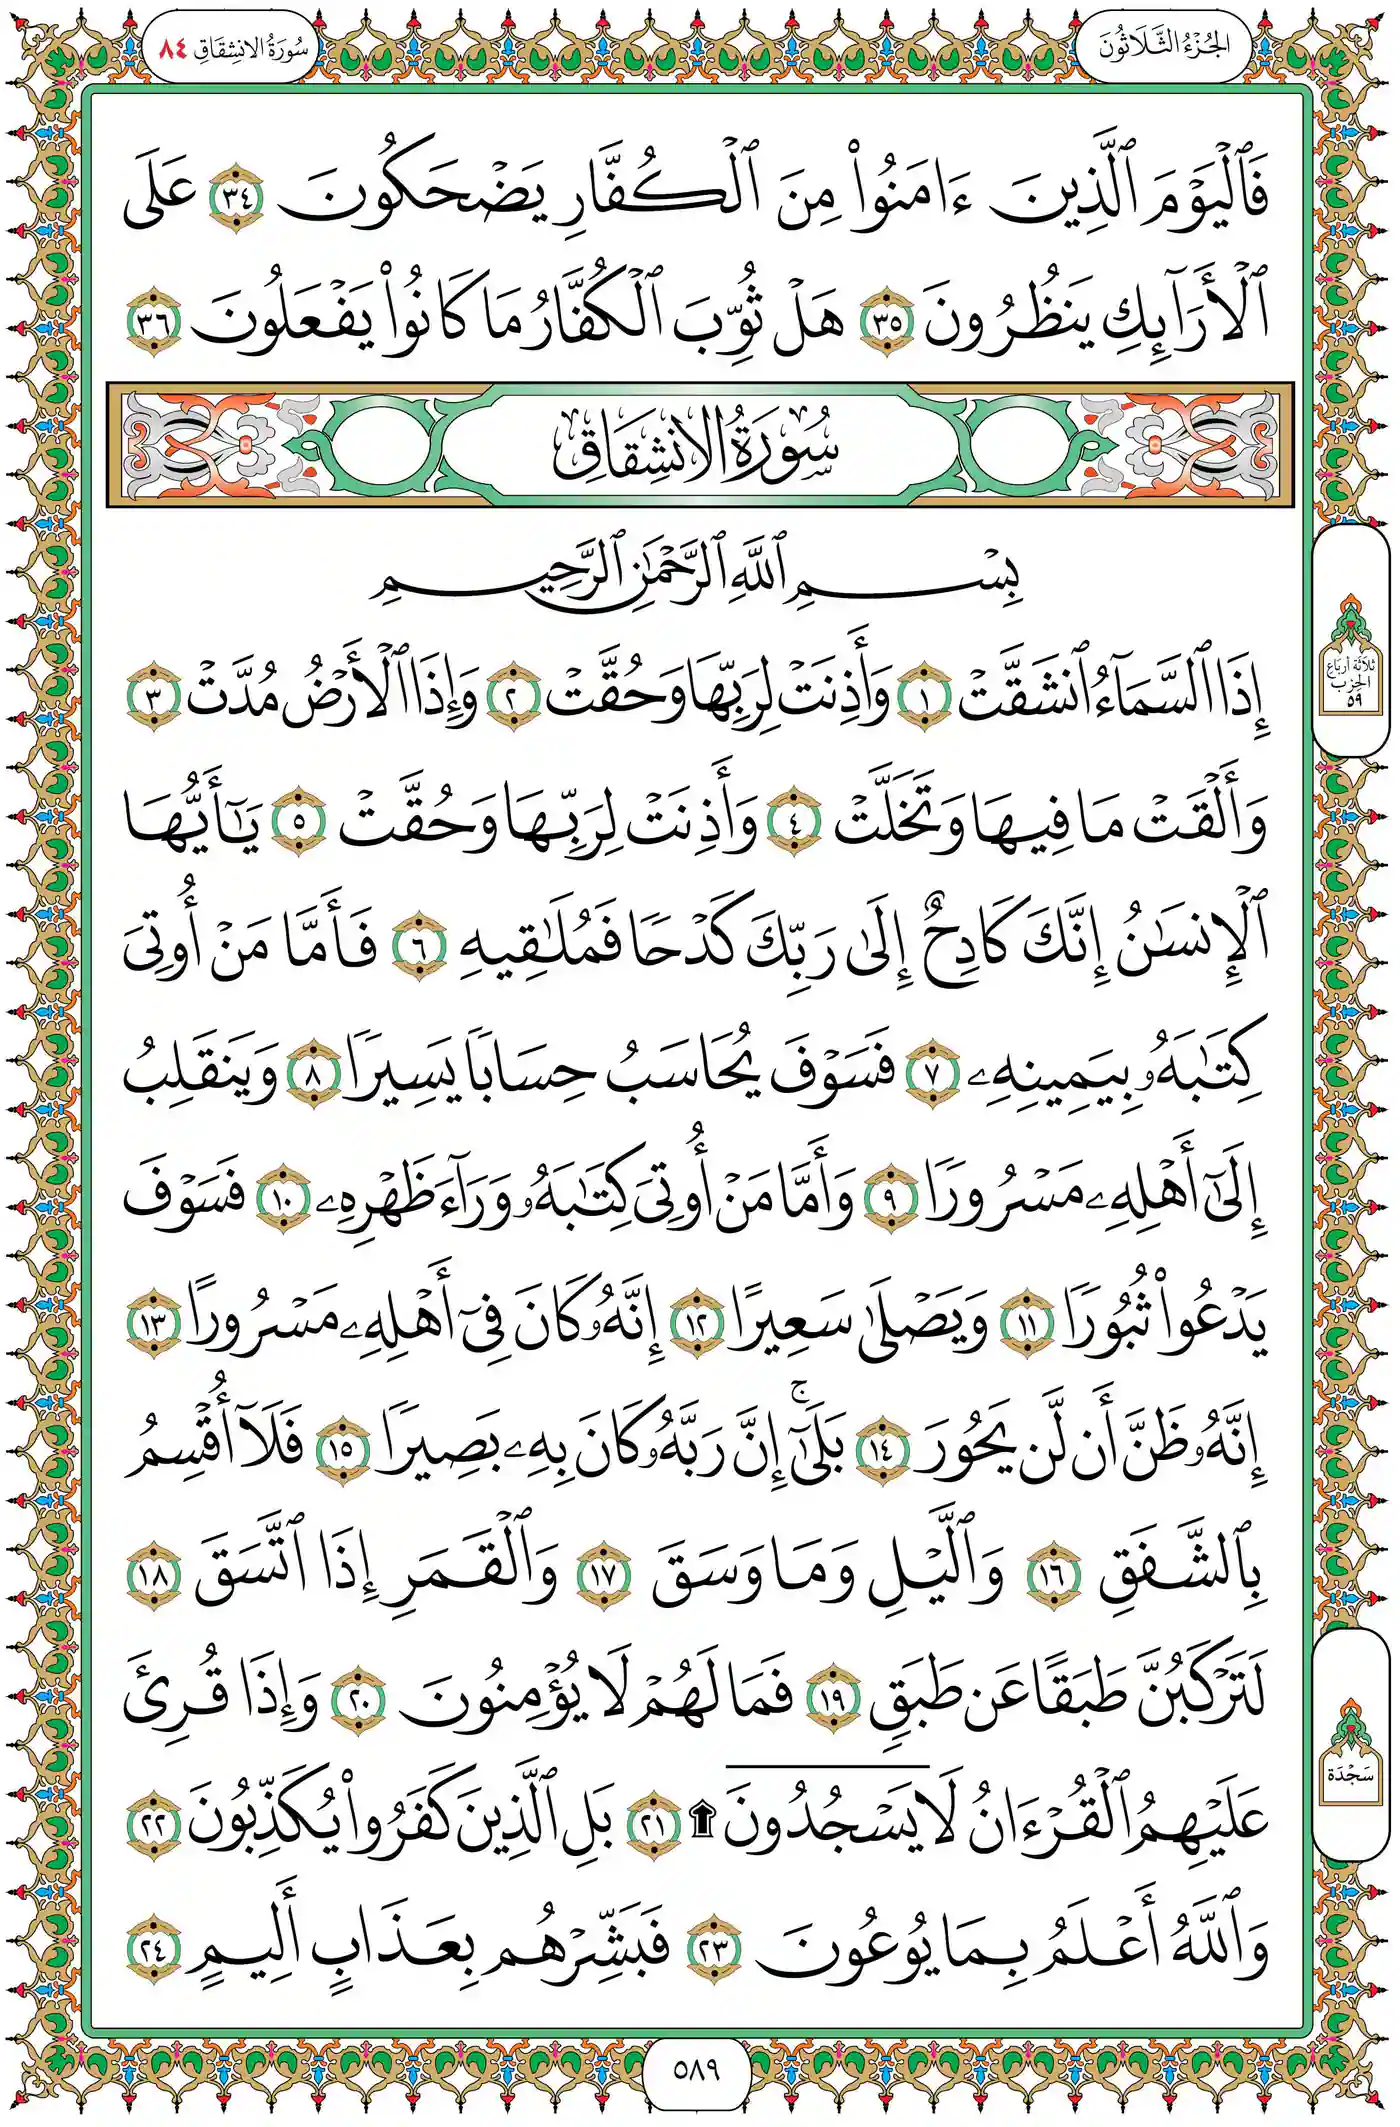 سُورَةُ الانشِقَاقِ ٨٤
الجُزْءُ الثَّلَاثُونَ
فَٱلْيَوْمَ ٱلَّذِينَ ءَامَنُوا۟ مِنَ ٱلْكُفَّارِ يَضْحَكُونَ ٣٤ عَلَى
ٱلْأَرَآئِكِ يَنظُرُونَ ٣٥ هَلْ ثُوِّبَ ٱلْكُفَّارُ مَا كَانُوا۟ يَفْعَلُونَ ٣٦
سُورَةُ الانشِقَاقِ
بِسْمِ ٱللَّهِ ٱلرَّحْمَٰنِ ٱلرَّحِيمِ
إِذَا ٱلسَّمَآءُ ٱنشَقَّتْ ١ وَأَذِنَتْ لِرَبِّهَا وَحُقَّتْ ٢ وَإِذَا ٱلْأَرْضُ مُدَّتْ ٣
وَأَلْقَتْ مَا فِيهَا وَتَخَلَّتْ ٤ وَأَذِنَتْ لِرَبِّهَا وَحُقَّتْ ٥ يَٰٓأَيُّهَا
ٱلْإِنسَٰنُ إِنَّكَ كَادِحٌ إِلَىٰ رَبِّكَ كَدْحًا فَمُلَٰقِيهِ ٦ فَأَمَّا مَنْ أُوتِىَ
كِتَٰبَهُۥ بِيَمِينِهِۦ ٧ فَسَوْفَ يُحَاسَبُ حِسَابًا يَسِيرًا ٨ وَيَنقَلِبُ
إِلَىٰٓ أَهْلِهِۦ مَسْرُورًا ٩ وَأَمَّا مَنْ أُوتِىَ كِتَٰبَهُۥ وَرَآءَ ظَهْرِهِۦ ١٠ فَسَوْفَ
يَدْعُوا۟ ثُبُورًا ١١ وَيَصْلَىٰ سَعِيرًا ١٢ إِنَّهُۥ كَانَ فِىٓ أَهْلِهِۦ مَسْرُورًا ١٣
إِنَّهُۥ ظَنَّ أَن لَّن يَحُورَ ١٤ بَلَىٰٓۚ إِنَّ رَبَّهُۥ كَانَ بِهِۦ بَصِيرًا ١٥ فَلَآ أُقْسِمُ
بِٱلشَّفَقِ ١٦ وَٱلَّيْلِ وَمَا وَسَقَ ١٧ وَٱلْقَمَرِ إِذَا ٱتَّسَقَ ١٨
لَتَرْكَبُنَّ طَبَقًا عَن طَبَقٍ ١٩ فَمَا لَهُمْ لَا يُؤْمِنُونَ ٢٠ وَإِذَا قُرِئَ
عَلَيْهِمُ ٱلْقُرْءَانُ لَا يَسْجُدُونَ ۩ ٢١ بَلِ ٱلَّذِينَ كَفَرُوا۟ يُكَذِّبُونَ ٢٢
وَٱللَّهُ أَعْلَمُ بِمَا يُوعُونَ ٢٣ فَبَشِّرْهُم بِعَذَابٍ أَلِيمٍ ٢٤
ثلاثة أرباع
الحزب
٥٩
سَجْدَة
٥٨٩